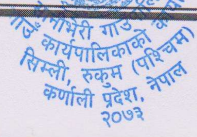 गाउँ कार्यपालिकाको
सिम्ली, रुकुम (पश्चिम)
कर्णाली प्रदेश, नेपाल
२०७३